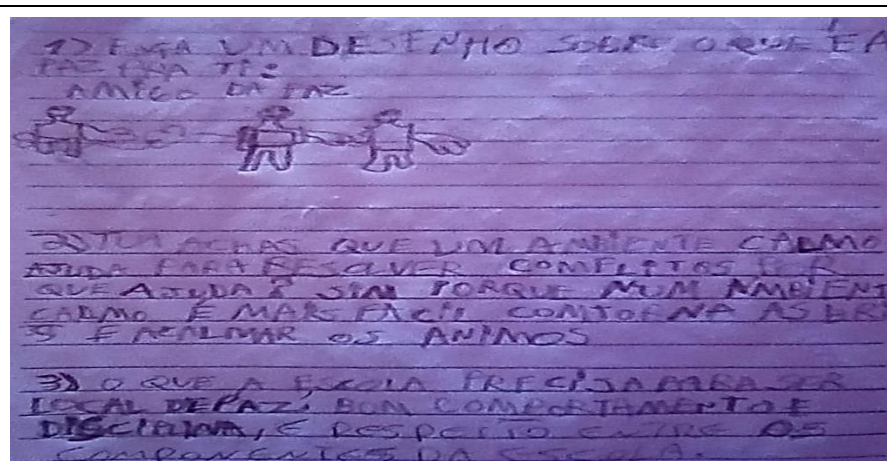 1) FAÇA UM DESENHO SOBRE O QUE É A
PAZ PRA TI:
AMIGO DA PAZ
2) TU ACHAS QUE UM AMBIENTE CALMO
AJUDA PARA RESOLVER COMFLITOS POR
QUE AJUDA? SIM PORQUE NUM AMBIENT
CALMO E MAIS FACIL COMTOENA AS BRI
S E ACALMAR OS ANIMOS
3) O QUE A ESCOLA PRECISA PARA SER
LOCAL DE PAZ: BOM COMPORTAMENTO E
DISCIPLINA, E RESPEITO ENTRE OS
COMPONENTES DA ESCOLA.